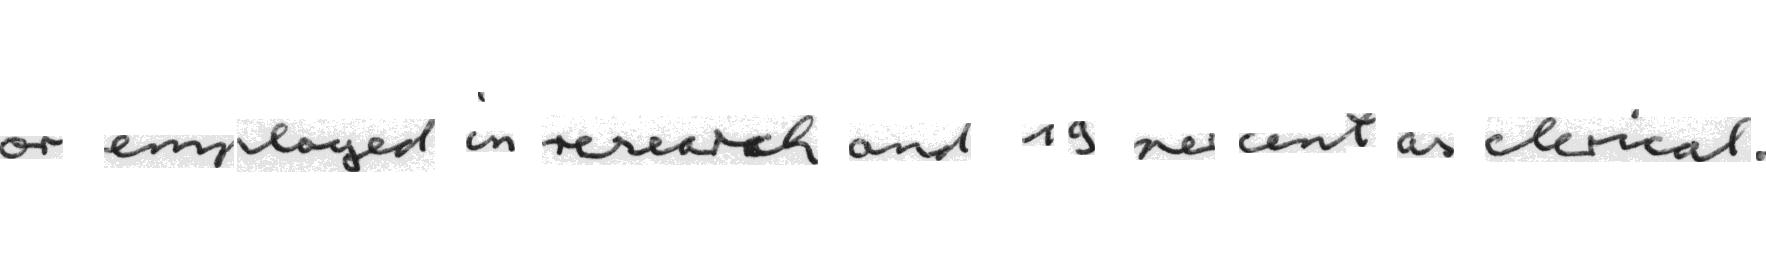 or employed in research and 19 per cent as clerical.